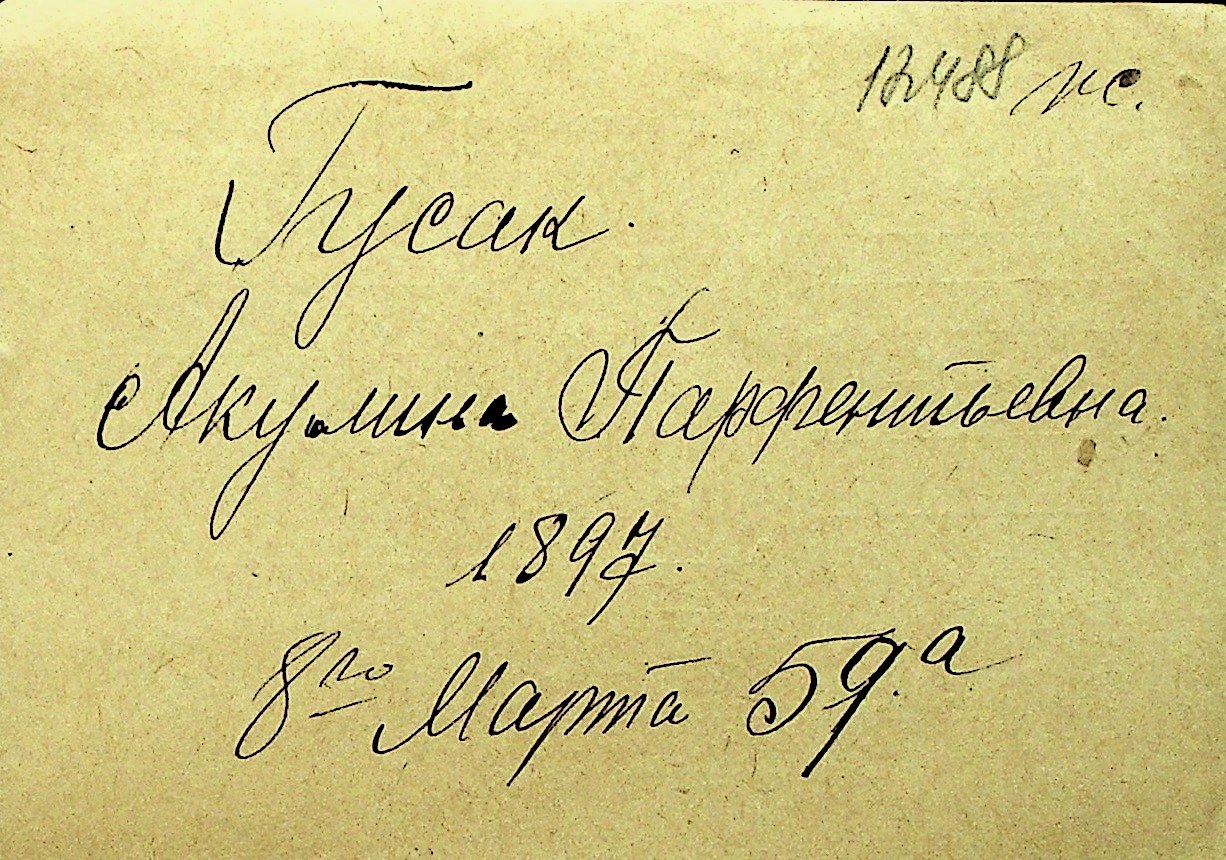 12488 пс.
Гусак.
Акулина Парфентьевна.
1897.
8го Марта 59.а